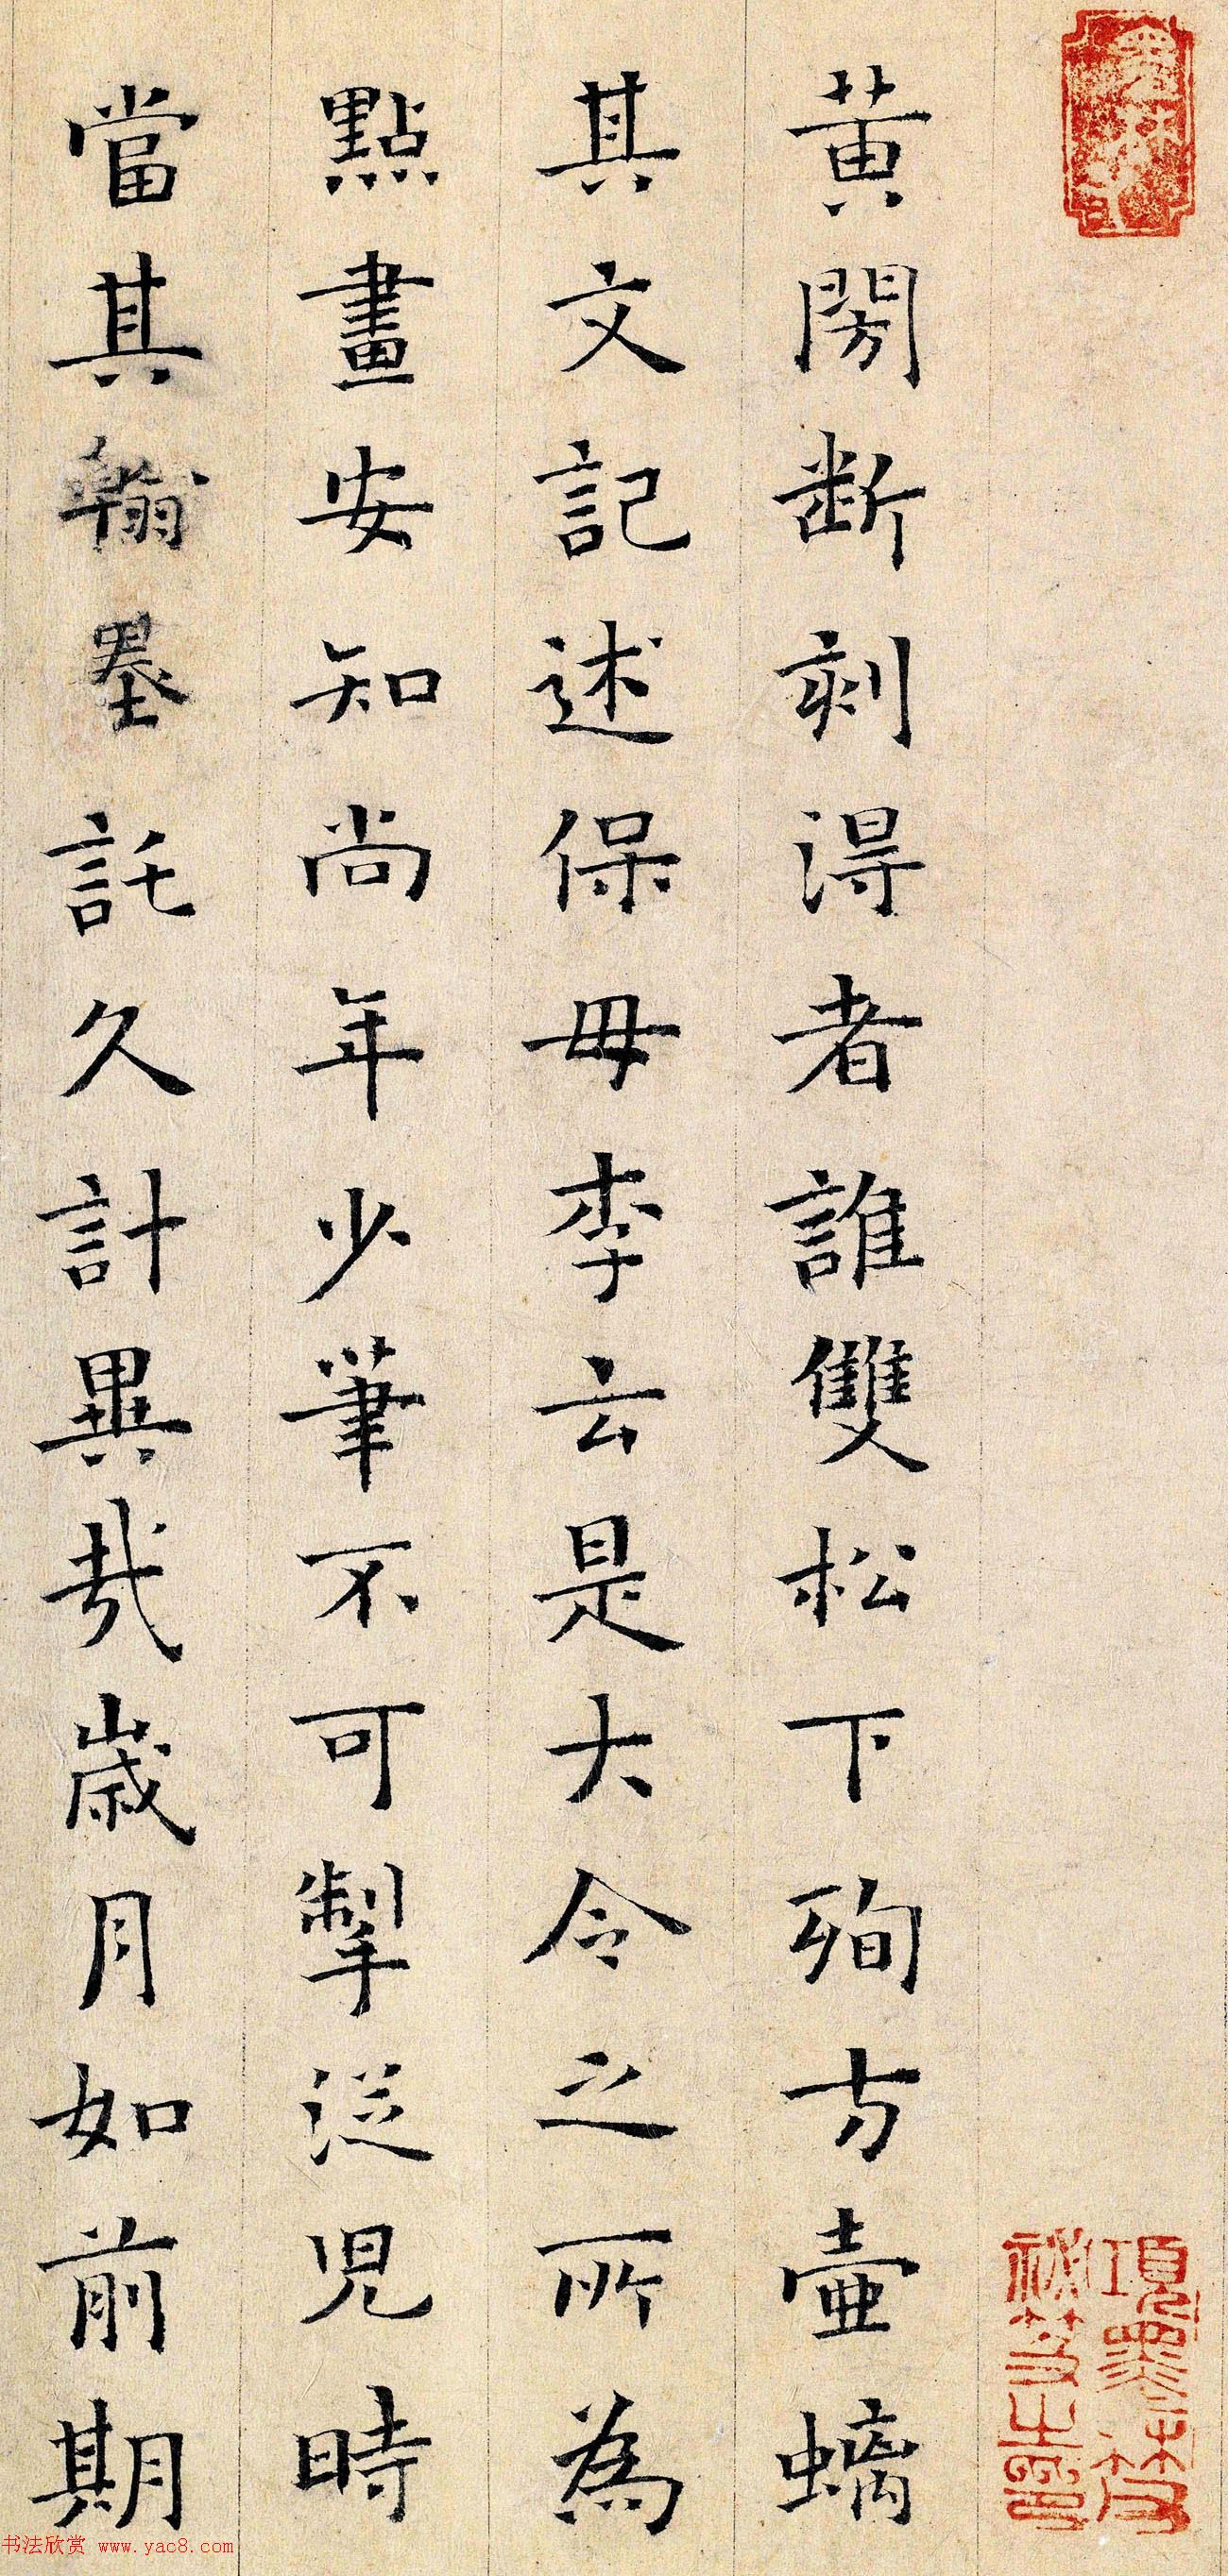 黄閍斷刻得者誰雙松下殉方壺螭
其文記述保母李云是大令之所為
點畫安知尚年少筆不可掣從兒時
當其翰墨託久計異哉歲月如前期
項墨林父
祕笈之印
书法欣赏 www.yac8.com